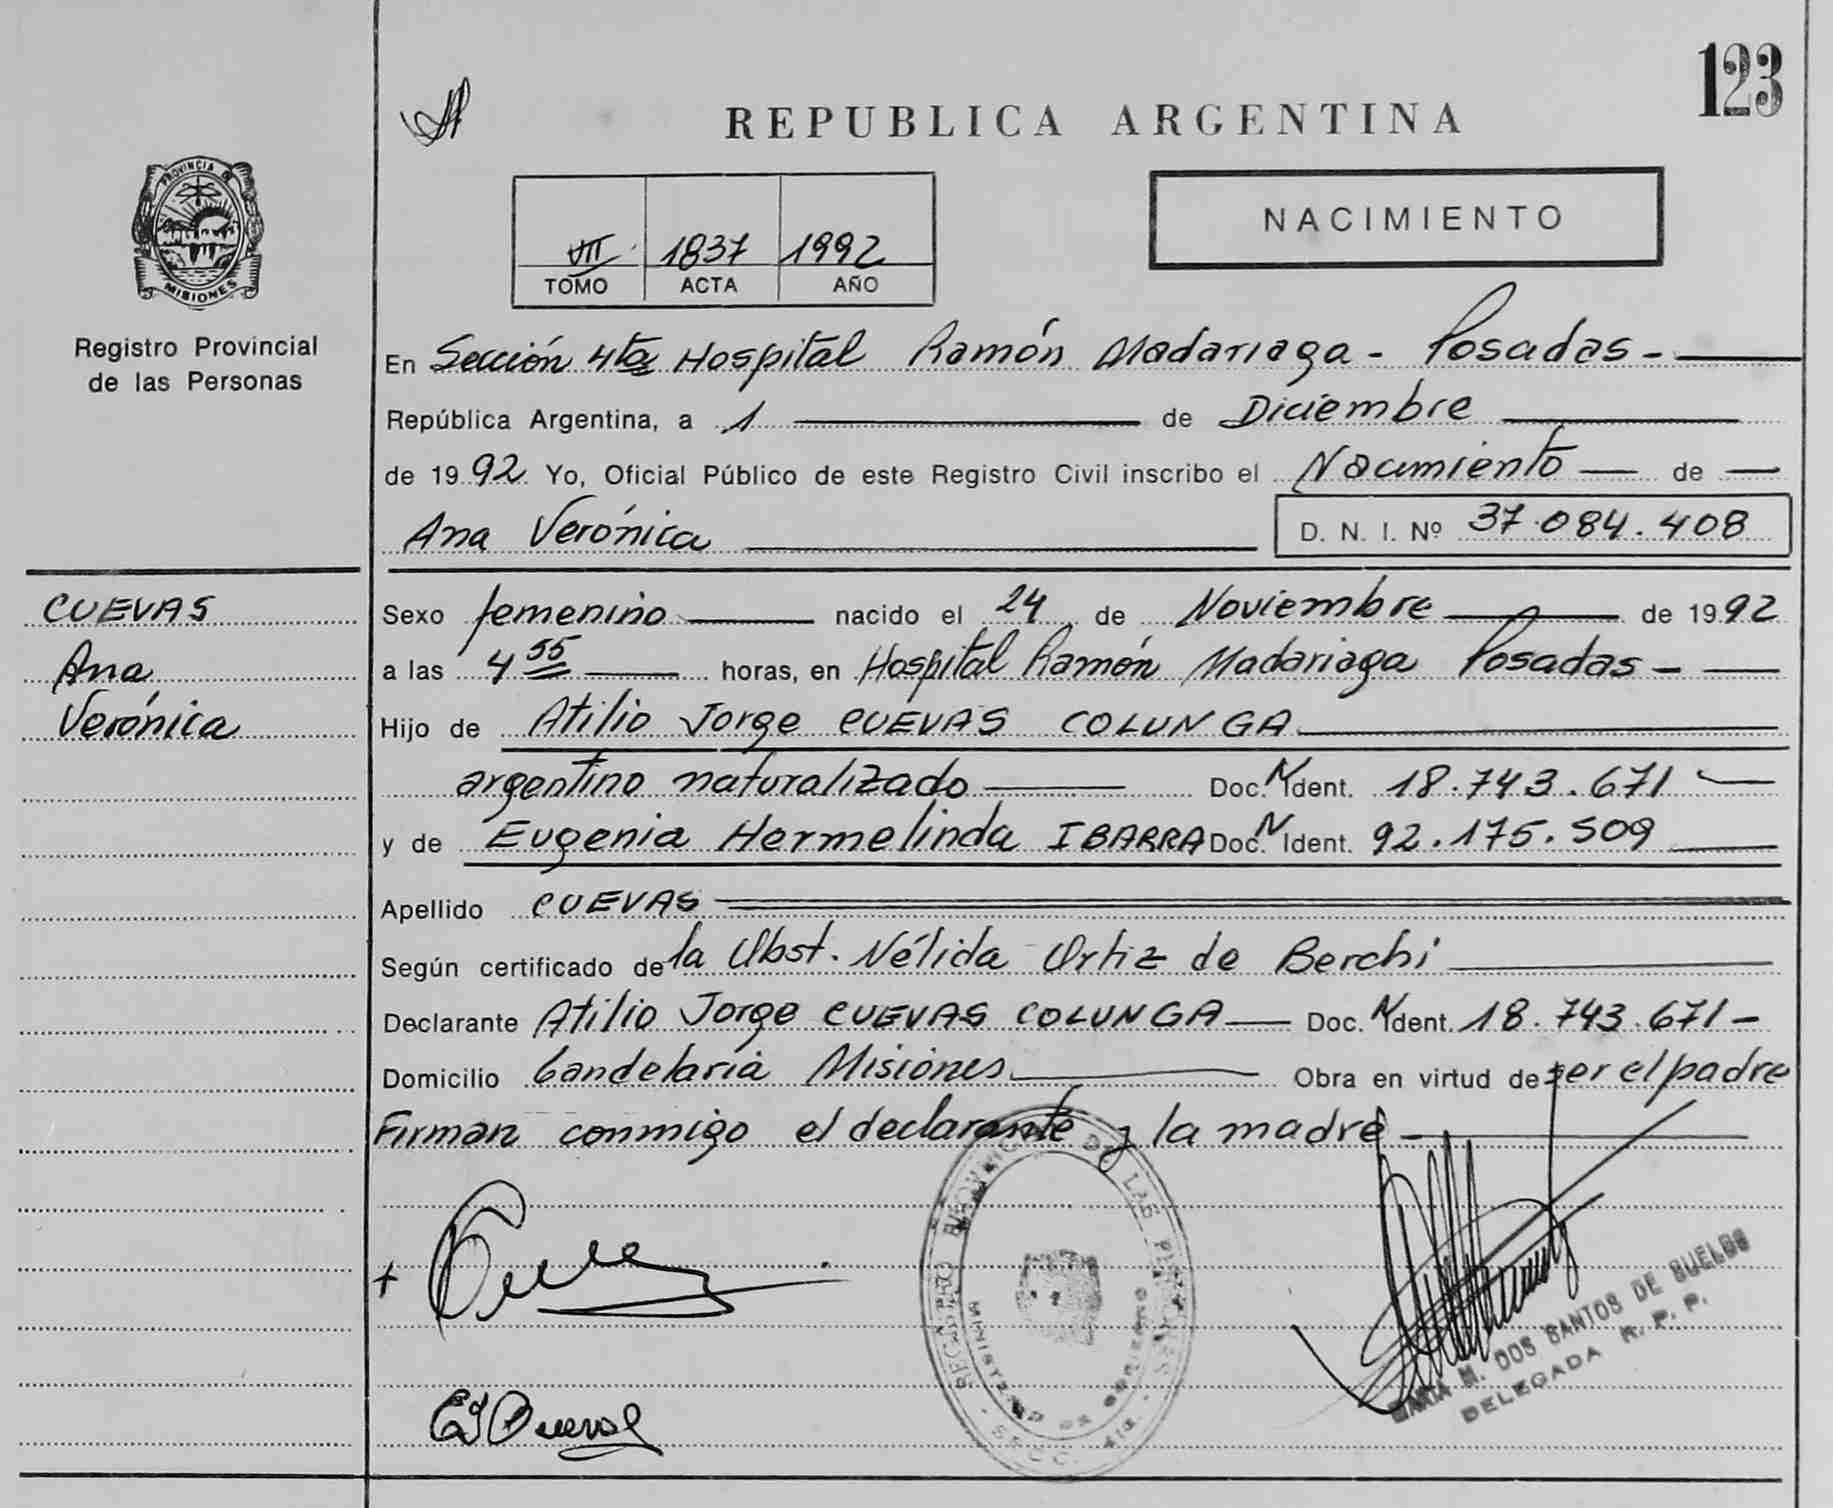 123
REPUBLICA ARGENTINA
PROVINCIA DE
MISIONES
Registro Provincial
de las Personas
NACIMIENTO
VII 1837 1992
TOMO ACTA AÑO
En Sección 4ta Hospital Ramón Madariaga - Posadas -
República Argentina, a 1 de Diciembre
de 1992 Yo, Oficial Público de este Registro Civil inscribo el Nacimiento de
Ana Verónica D. N. I. Nº 37.084.408
CUEVAS
Ana
Verónica
Sexo femenino nacido el 24 de Noviembre de 1992
a las 4 55 horas, en Hospital Ramón Madariaga Posadas -
Hijo de Atilio Jorge CUEVAS COLUNGA
argentino naturalizado Doc. N Ident. 18.743.671
y de Eugenia Hermelinda IBARRA Doc. N Ident. 92.175.509
Apellido CUEVAS
Según certificado de la Obst. Nélida Ortiz de Berchi
Declarante Atilio Jorge CUEVAS COLUNGA Doc. N Ident. 18.743.671 -
Domicilio Candelaria Misiones Obra en virtud de ser el padre
Firman conmigo el declarante y la madre -
REGISTRO PROVINCIAL DE LAS PERSONAS
MINISTERIO DE GOBIERNO
SECC. 4ta
M. DOS SANTOS DE BUELDS
DELEGADA R. P. P.